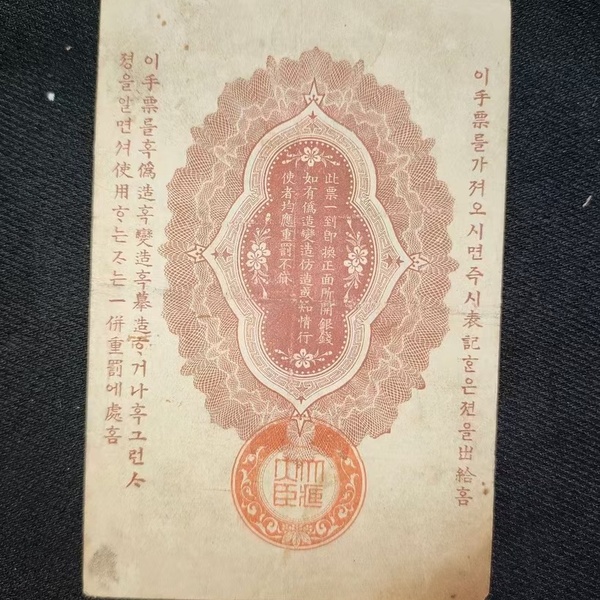 이手票를가져오시면즉시表記ᄒᆞᆫ은젼을出給홈
此票一到即換正面所開銀錢
如有偽造變造仿造或知情行
使者均應重罰不貸
이手票를혹僞造혹變造혹摹造ᄒᆞ거나혹그런ᄉᆞ
졍을알면셔使用ᄒᆞ는ᄌᆞ는一併重罰에處홈
大藏
大臣